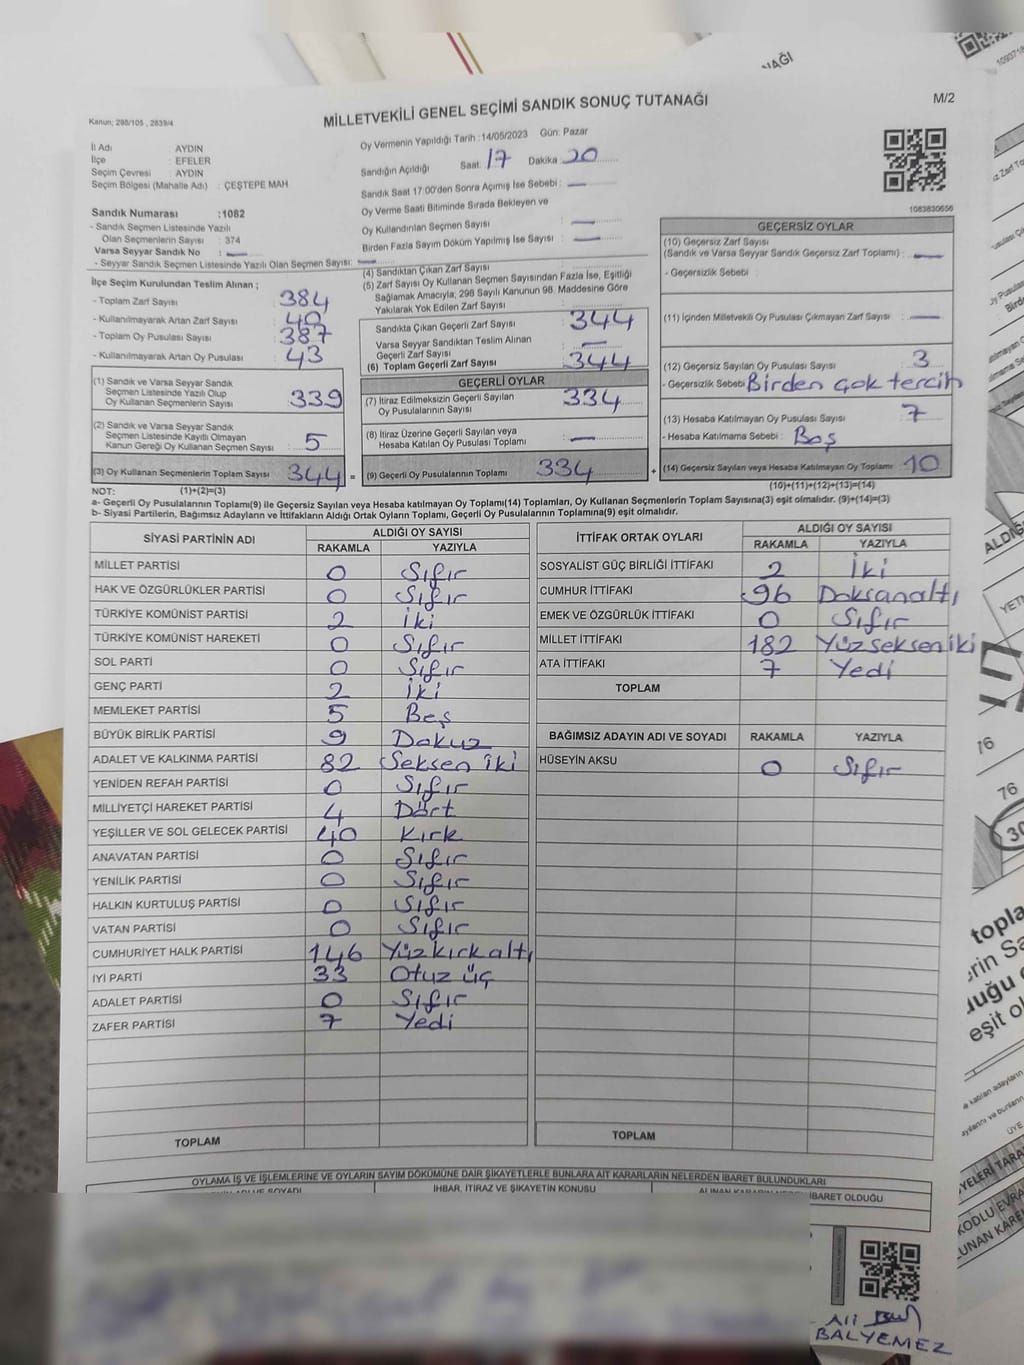 NAĞI
MİLLETVEKİLİ GENEL SEÇİMİ SANDIK SONUÇ TUTANAĞI
M/2
Kanun; 298/105 , 2839/4
İl Adı : AYDIN
İlçe : EFELER
Seçim Çevresi : AYDIN
Seçim Bölgesi (Mahalle Adı) : ÇEŞTEPE MAH
Sandık Numarası :1082
- Sandık Seçmen Listesinde Yazılı
Olan Seçmenlerin Sayısı : 374
Varsa Seyyar Sandık No : —
- Seyyar Sandık Seçmen Listesinde Yazılı Olan Seçmen Sayısı: —
Oy Vermenin Yapıldığı Tarih : 14/05/2023 Gün: Pazar
Sandığın Açıldığı Saat: 17 Dakika 20
Sandık Saat 17:00'den Sonra Açımış İse Sebebi : —
Oy Verme Saati Bitiminde Sırada Bekleyen ve
Oy Kullandırılan Seçmen Sayısı : —
Birden Fazla Sayım Döküm Yapılmış İse Sayısı : —
1083830656
İlçe Seçim Kurulundan Teslim Alınan ;
- Toplam Zarf Sayısı : 384
- Kullanılmayarak Artan Zarf Sayısı : 40
- Toplam Oy Pusulası Sayısı : 387
- Kullanılmayarak Artan Oy Pusulası : 43
(1) Sandık ve Varsa Seyyar Sandık
Seçmen Listesinde Yazılı Olup
Oy Kullanan Seçmenlerin Sayısı : 339
(2) Sandık ve Varsa Seyyar Sandık
Seçmen Listesinde Kayıtlı Olmayan
Kanun Gereği Oy Kullanan Seçmen Sayısı : 5
(3) Oy Kullanan Seçmenlerin Toplam Sayısı : 344 =
(4) Sandıktan Çıkan Zarf Sayısı
(5) Zarf Sayısı Oy Kullanan Seçmen Sayısından Fazla İse, Eşitliği
Sağlamak Amacıyla; 298 Sayılı Kanunun 98. Maddesine Göre
Yakılarak Yok Edilen Zarf Sayısı
Sandıkta Çıkan Geçerli Zarf Sayısı : 344
Varsa Seyyar Sandıktan Teslim Alınan
Geçerli Zarf Sayısı : —
(6) Toplam Geçerli Zarf Sayısı : 344
GEÇERLİ OYLAR
(7) İtiraz Edilmeksizin Geçerli Sayılan
Oy Pusulalarının Sayısı : 334
(8) İtiraz Üzerine Geçerli Sayılan veya
Hesaba Katılan Oy Pusulası Toplamı : —
(9) Geçerli Oy Pusulalarının Toplamı 334 +
GEÇERSİZ OYLAR
(10) Geçersiz Zarf Sayısı
(Sandık ve Varsa Seyyar Sandık Geçersiz Zarf Toplamı) : —
- Geçersizlik Sebebi :
(11) İçinden Milletvekili Oy Pusulası Çıkmayan Zarf Sayısı : —
(12) Geçersiz Sayılan Oy Pusulası Sayısı : 3
- Geçersizlik Sebebi Birden çok tercih
(13) Hesaba Katılmayan Oy Pusulası Sayısı : 7
- Hesaba Katılmama Sebebi : Boş
(14) Geçersiz Sayılan veya Hesaba Katılmayan Oy Toplamı : 10
(10)+(11)+(12)+(13)=(14)
NOT: (1)+(2)=(3)
a- Geçerli Oy Pusulalarının Toplamı(9) ile Geçersiz Sayılan veya Hesaba katılmayan Oy Toplamı(14) Toplamları, Oy Kullanan Seçmenlerin Toplam Sayısına(3) eşit olmalıdır. (9)+(14)=(3)
b- Siyasi Partilerin, Bağımsız Adayların ve İttifakların Aldığı Ortak Oyların Toplamı, Geçerli Oy Pusulalarının Toplamına(9) eşit olmalıdır.
SİYASİ PARTİNİN ADI ALDIĞI OY SAYISI
RAKAMLA YAZIYLA
MİLLET PARTİSİ 0 Sıfır
HAK VE ÖZGÜRLÜKLER PARTİSİ 0 Sıfır
TÜRKİYE KOMÜNİST PARTİSİ 2 İki
TÜRKİYE KOMÜNİST HAREKETİ 0 Sıfır
SOL PARTİ 0 Sıfır
GENÇ PARTİ 2 İki
MEMLEKET PARTİSİ 5 Beş
BÜYÜK BİRLİK PARTİSİ 9 Dokuz
ADALET VE KALKINMA PARTİSİ 82 Seksen iki
YENİDEN REFAH PARTİSİ 0 Sıfır
MİLLİYETÇİ HAREKET PARTİSİ 4 Dört
YEŞİLLER VE SOL GELECEK PARTİSİ 40 Kırk
ANAVATAN PARTİSİ 0 Sıfır
YENİLİK PARTİSİ 0 Sıfır
HALKIN KURTULUŞ PARTİSİ 0 Sıfır
VATAN PARTİSİ 0 Sıfır
CUMHURİYET HALK PARTİSİ 146 Yüzkırkaltı
İYİ PARTİ 33 Otuz üç
ADALET PARTİSİ 0 Sıfır
ZAFER PARTİSİ 7 Yedi
TOPLAM
İTTİFAK ORTAK OYLARI ALDIĞI OY SAYISI
RAKAMLA YAZIYLA
SOSYALİST GÜÇ BİRLİĞİ İTTİFAKI 2 İki
CUMHUR İTTİFAKI 96 Doksanaltı
EMEK VE ÖZGÜRLÜK İTTİFAKI 0 Sıfır
MİLLET İTTİFAKI 182 Yüzsekseniki
ATA İTTİFAKI 7 Yedi
TOPLAM
BAĞIMSIZ ADAYIN ADI VE SOYADI RAKAMLA YAZIYLA
HÜSEYİN AKSU 0 Sıfır
TOPLAM
OYLAMA İŞ VE İŞLEMLERİNE VE OYLARIN SAYIM DÖKÜMÜNE DAİR ŞİKAYETLERLE BUNLARA AİT KARARLARIN NELERDEN İBARET BULUNDUKLARI
İHBAR, İTİRAZ VE ŞİKAYETİN KONUSU
İBARET OLDUĞU
Ali
BALYEMEZ
76
76
30
topla
eşit ol